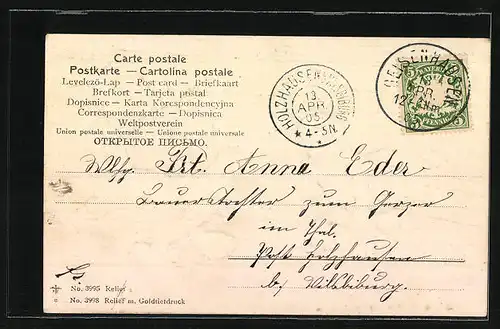 Carte postale
Postkarte — Cartolina postale
Levelező-Lap — Post card — Briefkaart
Brefkort — Tarjeta postal
Dopisnice — Karta Korespondencyjna
Correspondenzkarte — Dopisnica
Weltpostverein
Union postale universelle — Unione postale universale
ОТКРЫТОЕ ПИСЬМО.
HOLZHAUSEN
13
APR
05
4-5N.
GEISENHAUSEN
APR
5
Frl. Anna Eder
Bauerstochter zum
im Thal.
Post Holzhausen
b/ Vilsbiburg.
No. 3995 Relief
No. 3998 Relief m. Golddruck